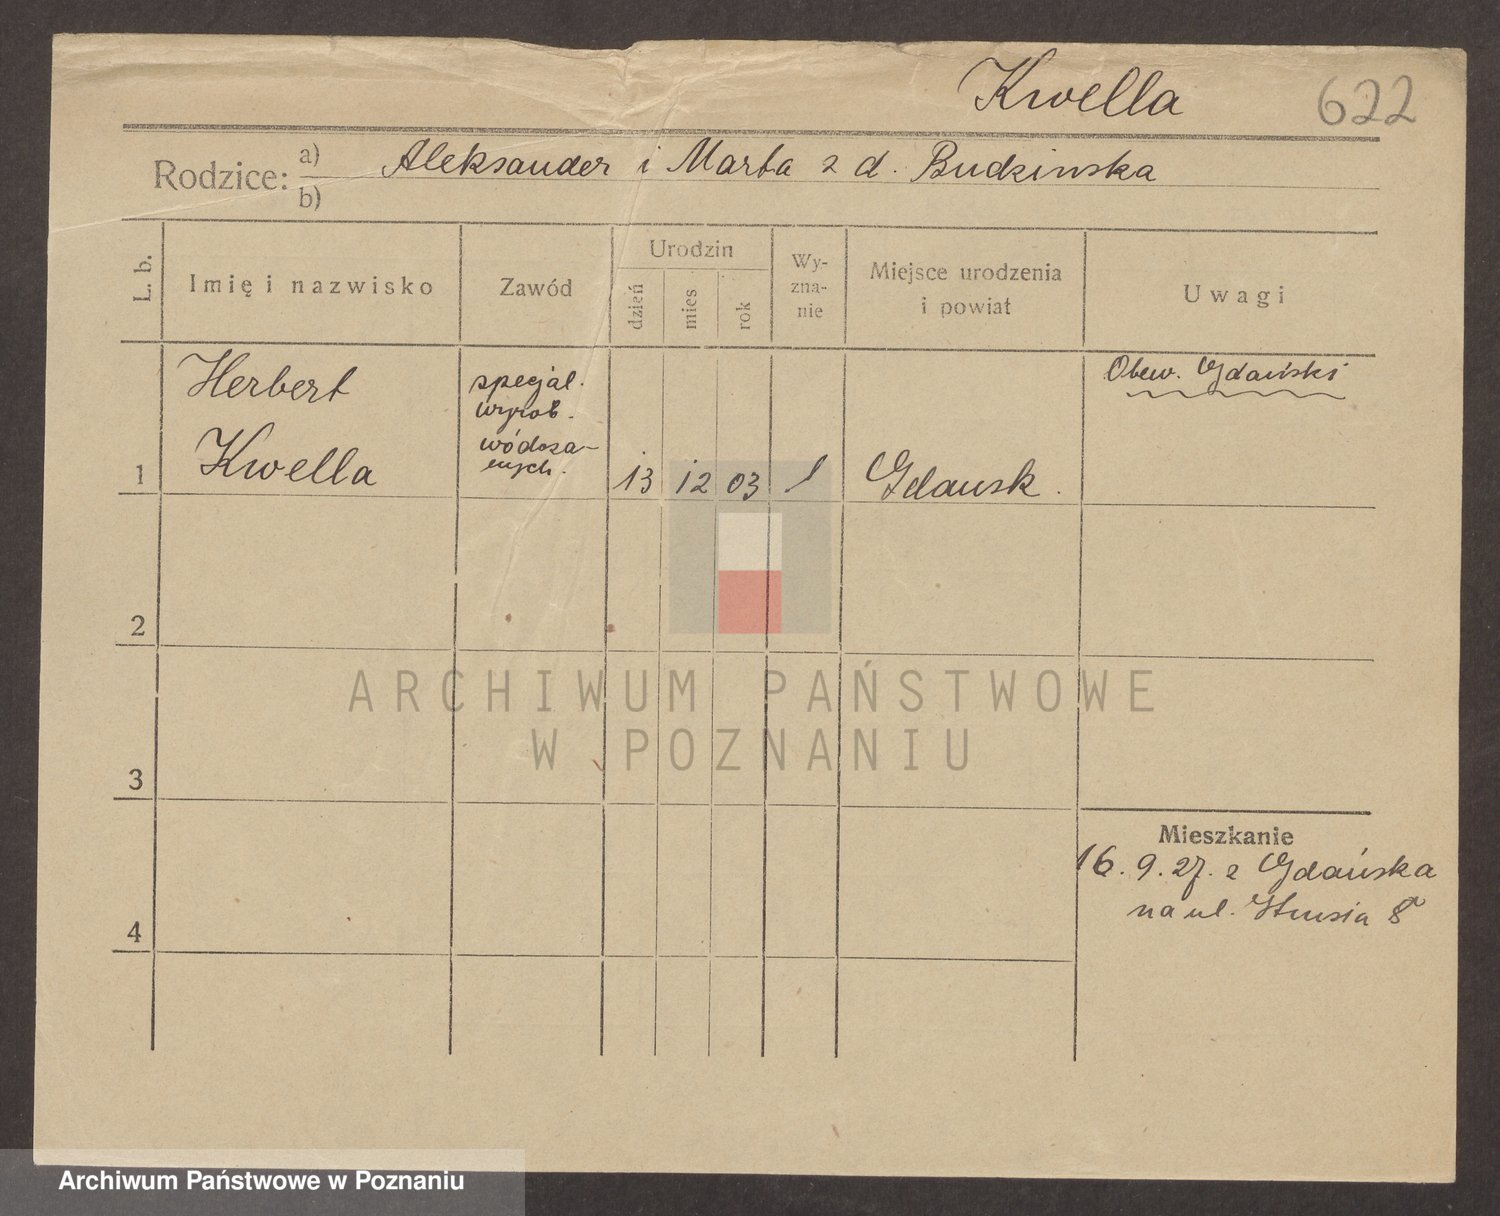 Kwella 622
Rodzice: a) Aleksander i Marta z d. Budzinska
b)
L. b. Imię i nazwisko Zawód Urodzin dzień mies rok Wy-zna-nie Miejsce urodzenia i powiat Uwagi
Herbert specjal. Obyw. Gdański
wyrob.
Kwella wódcza-
nych.
1 13 12 03 Gdansk.
2
ARCHIWUM PAŃSTWOWE
W POZNANIU
3
Mieszkanie
16. 9. 27. z Gdańska
na ul. Strusia 8
4
Archiwum Państwowe w Poznaniu